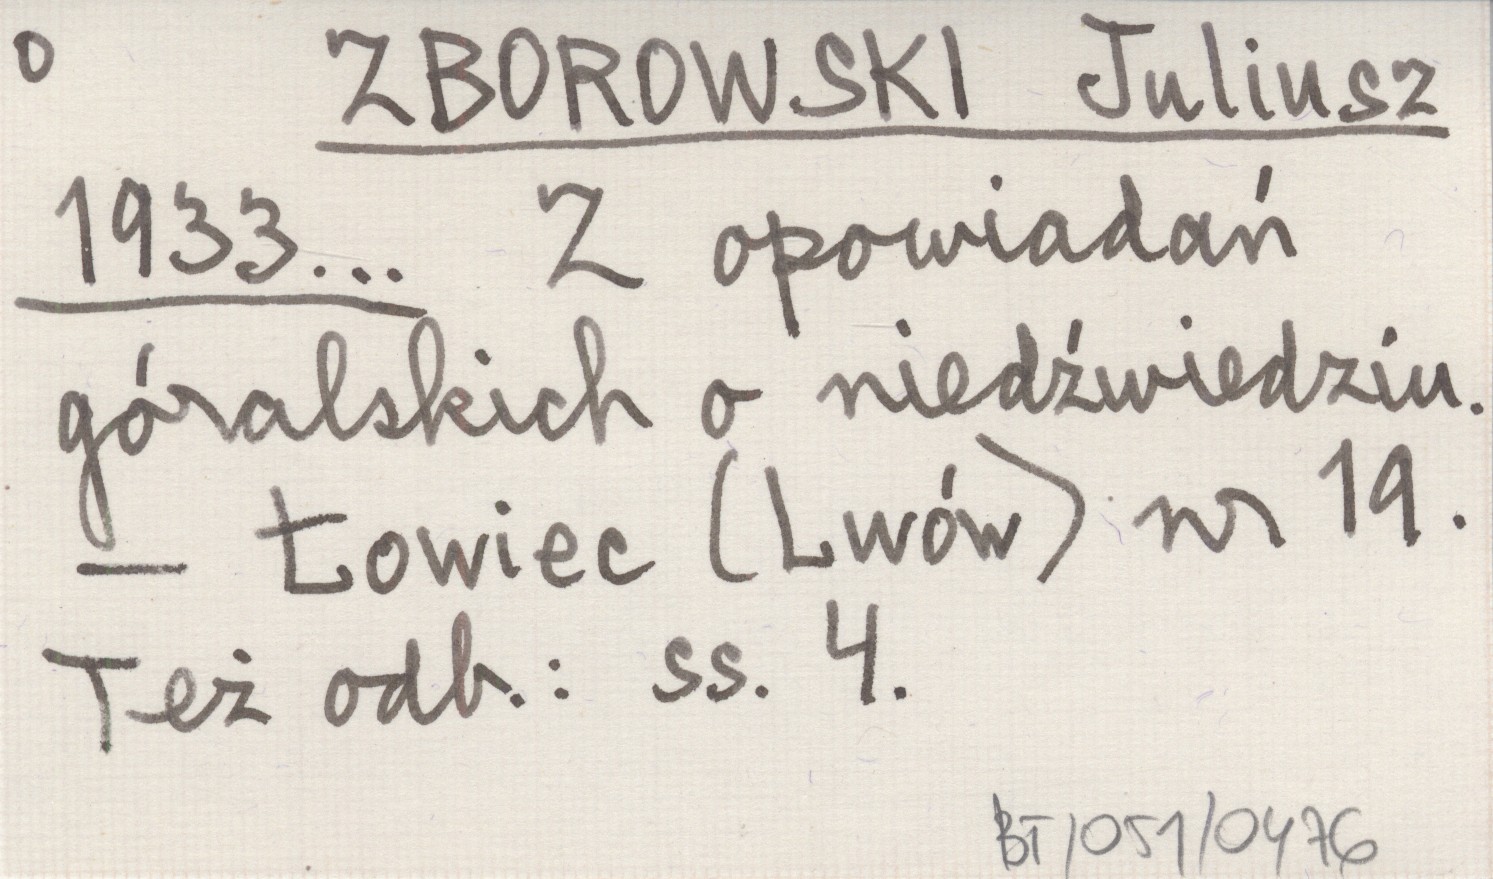 o ZBOROWSKI Juliusz
1933... Z opowiadań
góralskich o niedźwiedziu.
— Łowiec (Lwów) nr 19.
Też odb.: ss. 4.
BT/051/0476